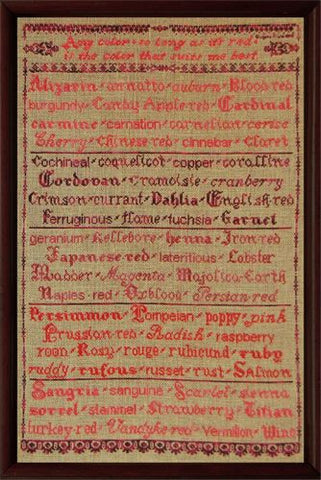 Any color - so long as it's red
is the color that suits me best
Alizarin - annatto - auburn - Blood red
burgundy - Candy Apple red - Cardinal
carmine - carnation - carnelian - cerise
Cherry - Chinese red - cinnabar - Claret
Cochineal - coquelicot - copper - coralline
Cordovan - Cramoisie - cranberry
Crimson - currant - Dahlia - English red
Ferruginous - flame - fuchsia - Garnet
geranium - hellebore - henna - Iron red
Japanese red - lateritious - Lobster
Madder - Magenta - Majolica Earth
Naples - red - Oxblood - Persian red
Persimmon - Pompeian - poppy - pink
Prussian red - Radish - raspberry
roan - Rosy - rouge - rubicund - ruby
ruddy - rufous - russet - rust - Salmon
Sangria - sanguine - Scarlet - sienna
sorrel - stammel - Strawberry - Titian
turkey red - Vandyke red - Vermilion - Wine